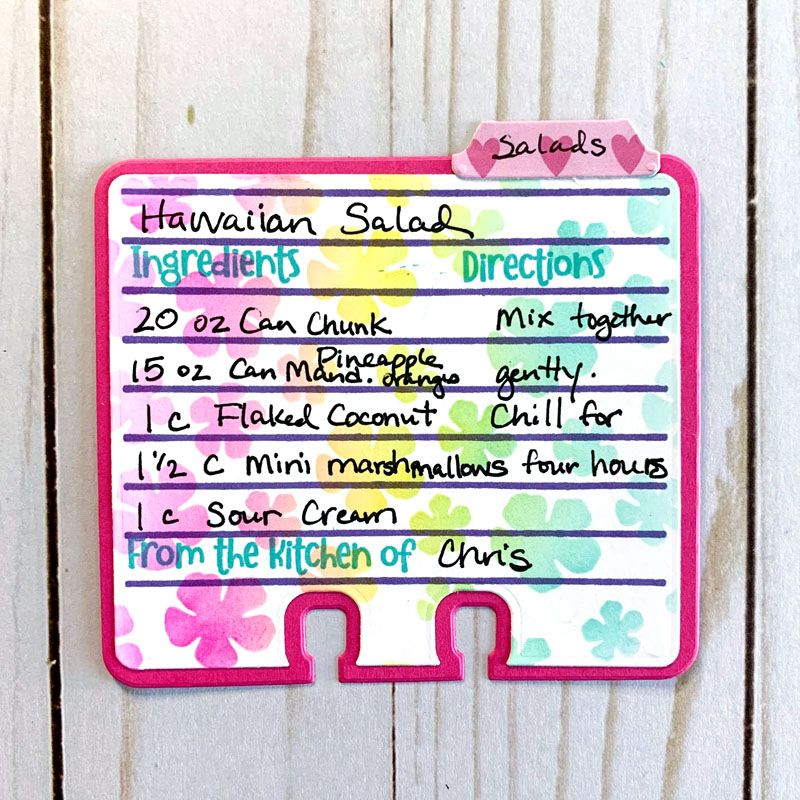 Salads
Hawaiian Salad
Ingredients Directions
20 oz Can Chunk Mix together
Pineapple
15 oz Can Mand. oranges gently.
1 c Flaked Coconut Chill for
1 1/2 C Mini marshmallows four hours
1 c Sour Cream
From the Kitchen of Chris